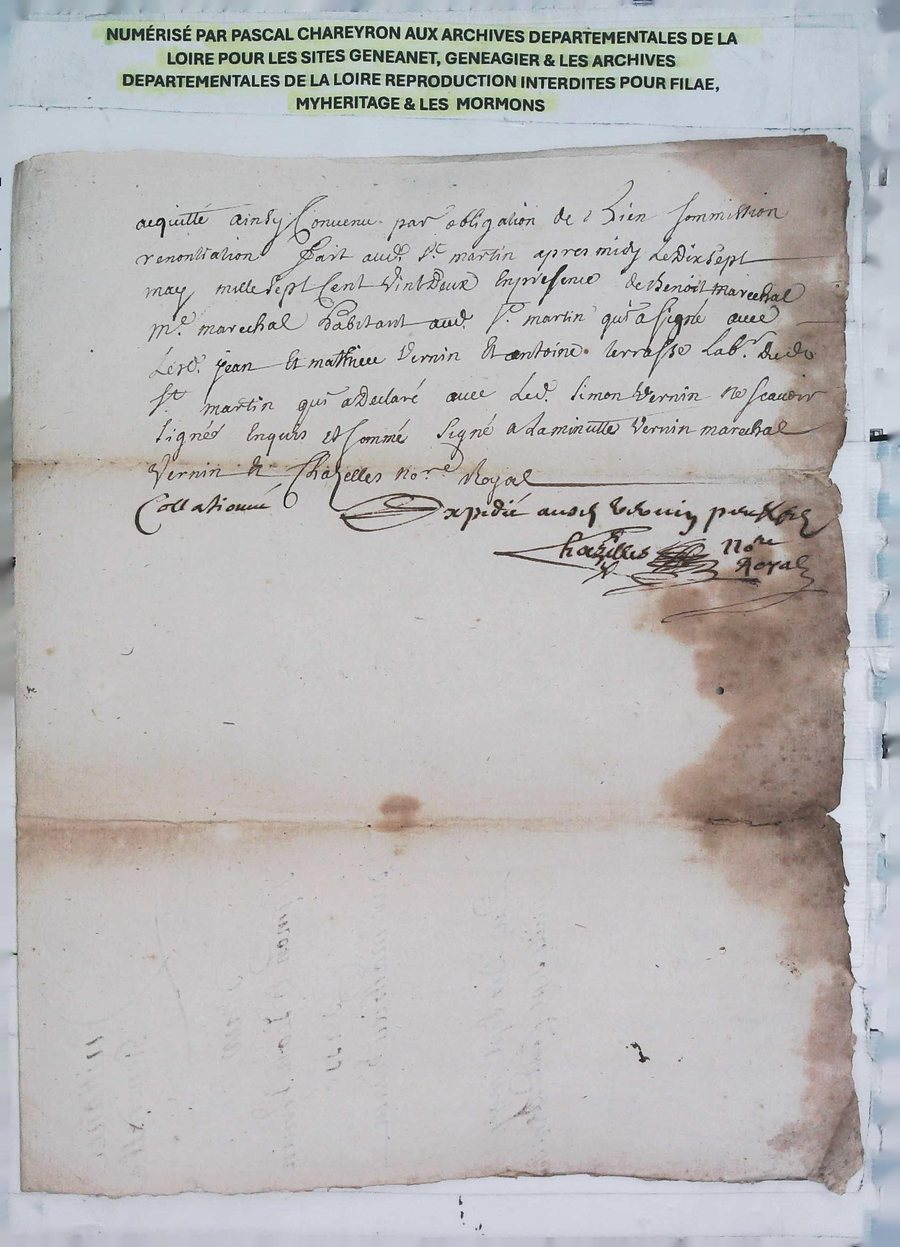 NUMÉRISÉ PAR PASCAL CHAREYRON AUX ARCHIVES DEPARTEMENTALES DE LA
LOIRE POUR LES SITES GENEANET, GENEAGIER & LES ARCHIVES
DEPARTEMENTALES DE LA LOIRE REPRODUCTION INTERDITES POUR FILAE,
MYHERITAGE & LES MORMONS
acquitté ainsy Convenu par obligation de bien soumission
renontiation fait aud. St martin apres midy Le dix sept
may mille sept Cent Vint Deux En presence de Benoit marechal
me. marechal habitant aud. St. martin qui a signé avec
Lesd. jean Et mathieu Vernin Et antoine terrasse Labr. Dud.
St. martin qui a Declaré avec Led. simon Vernin ne scavoir
signer Enquis et sommé signé a La minutte Vernin marechal
Vernin Et Chazelles nore. Royal
Collationné Expedié ausd. Vernin
Chazelles nore
Royal